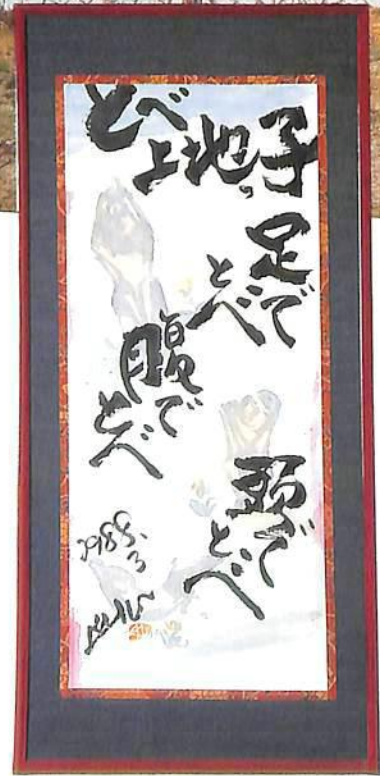 とべ
上地っ子
足で
とべ
腹で
とべ
頭で
とべ
1988.3